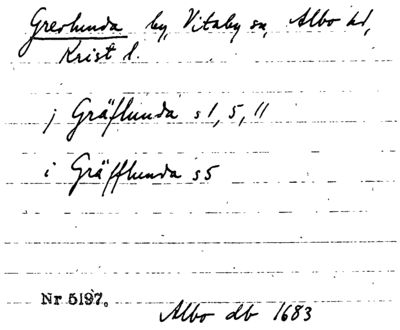 Grevlunda by, Vitaby sn, Albo hd,
Krist l.
j Gräflunda s1, 5, 11
i Gräfflunda s5
Nr 5197.
Albo db 1683